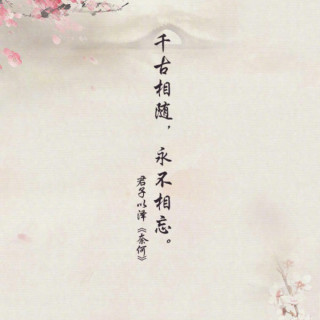 千古相随，永不相忘。
君子以泽《奈何》